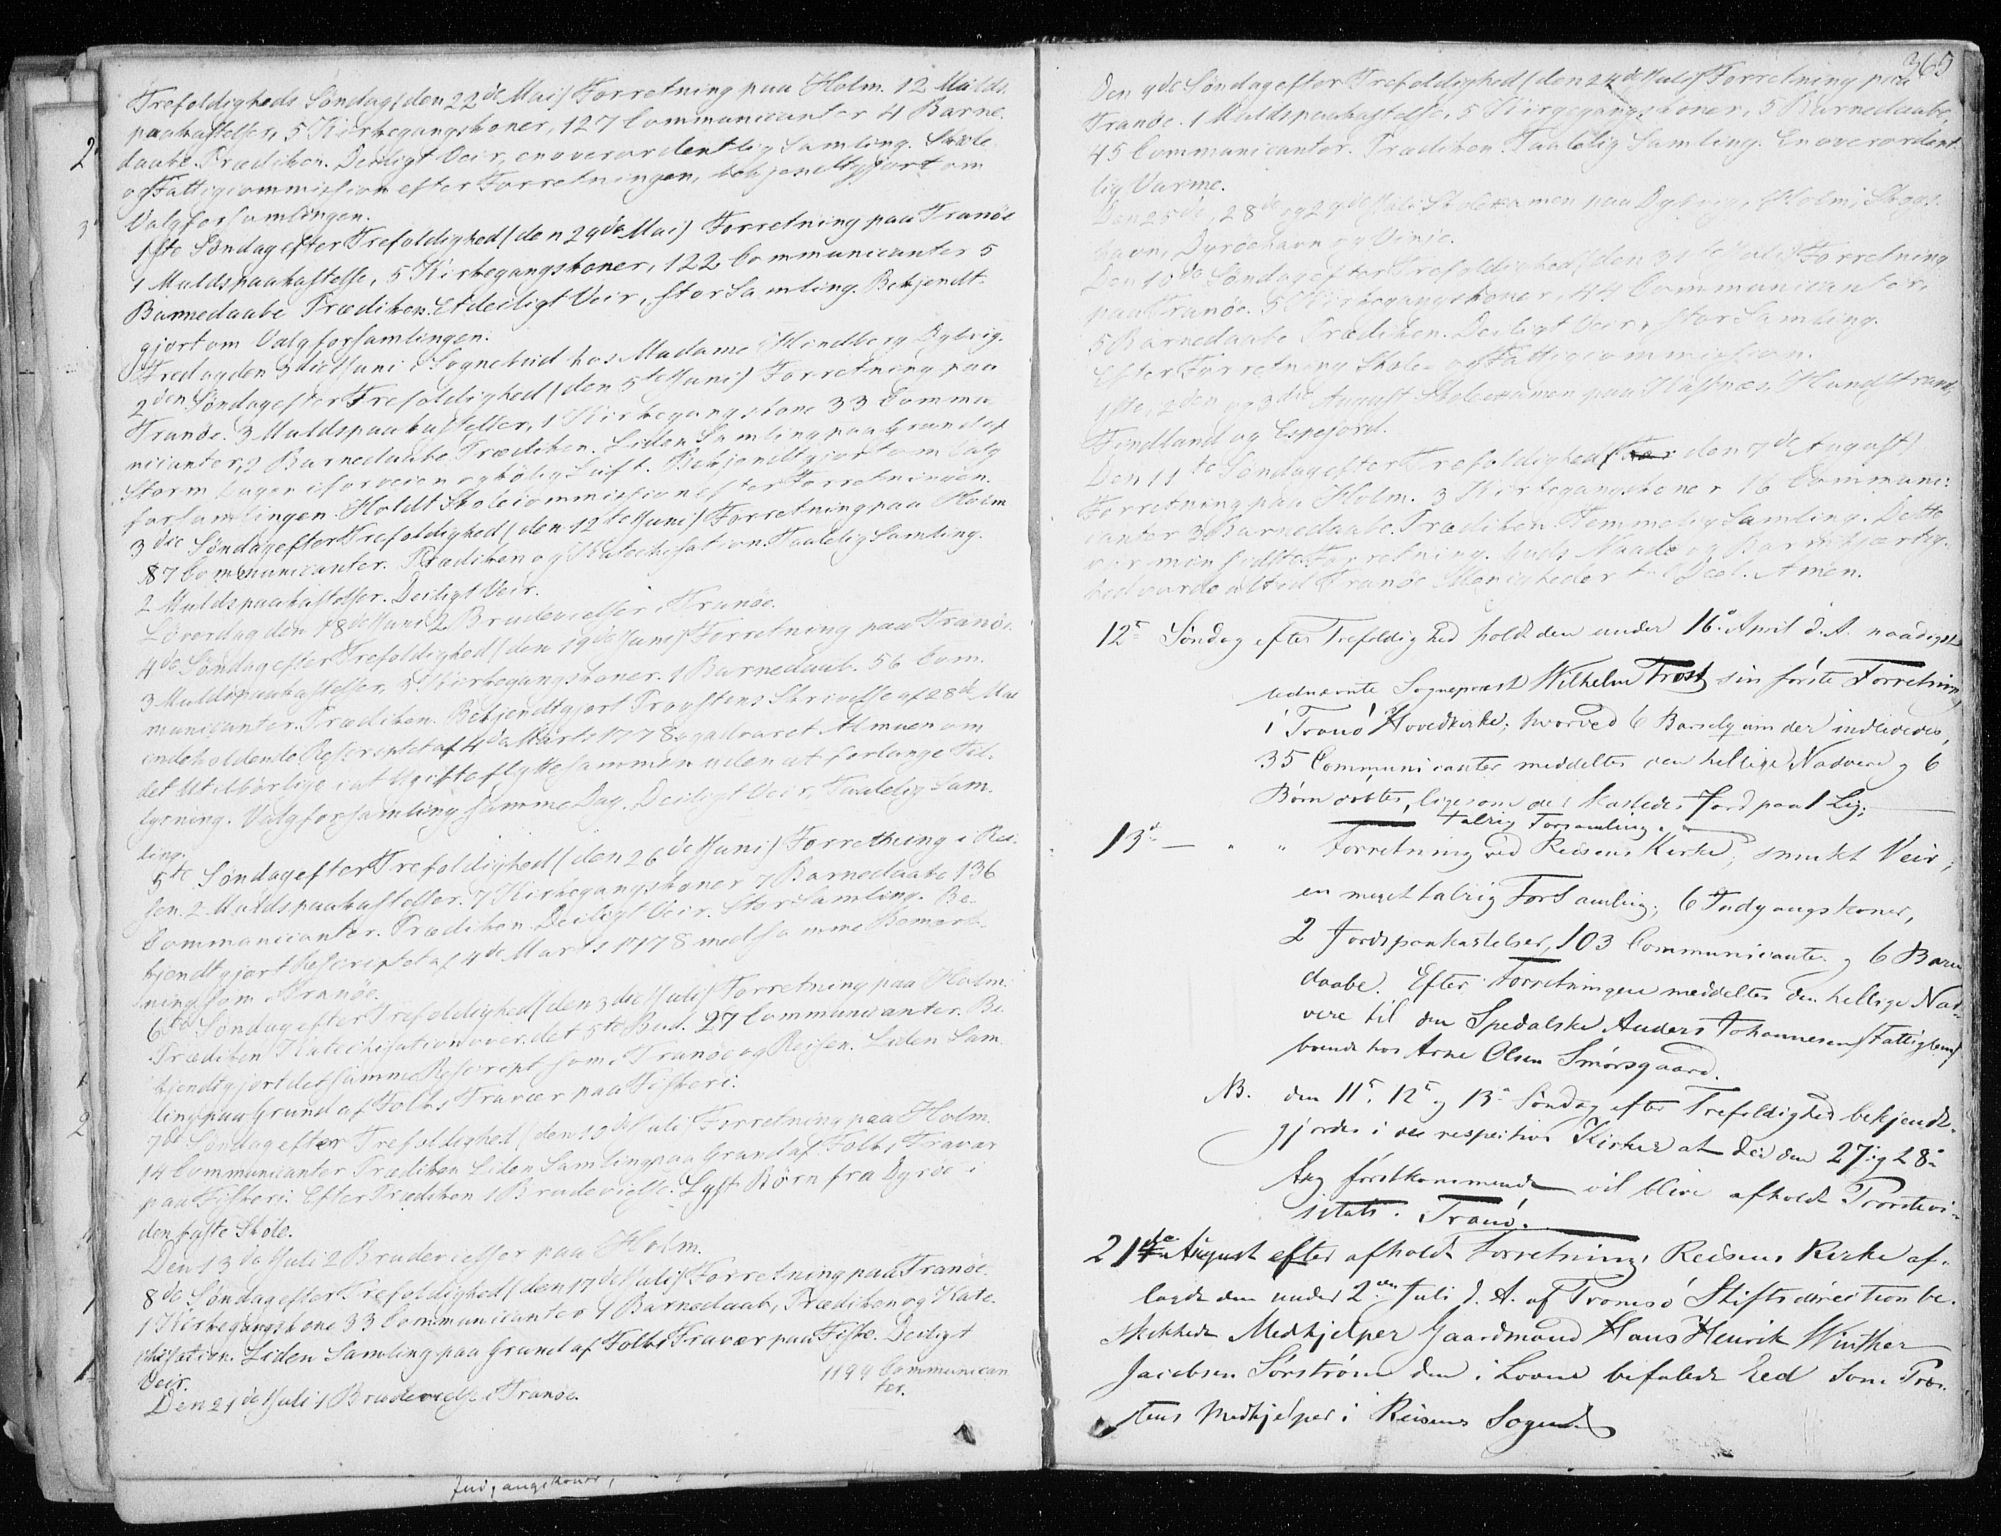 Trefoldigheds Søndag (den 22de Mai) Forretning paa Holm. 12 Mulds
paakastelser, 5 Kirkegangskoner, 127 Communicanter 4 Barne
daabe. Prædiken. Deiligt Veir, en overordentlig Samling. Skole
og Fattigcommission efter Forretningen, bekjendtgjort om
Valgforsamlingen.
1ste Søndag efter Trefoldighed (den 29de Mai) Forretning paa Tranöe
1 Muldspaakastelse, 5 Kirkegangskoner, 122 Communicanter 5
Barnedaabe Prædiken. Et deiligt Veir, stor Samling. Bekjendt-
gjort om Valgforsamlingen.
Fredag den 3die Juni i Sognebud hos Madame Hindberg Dybvig.
2den Søndag efter Trefoldighed (den 5te Juni) Forretning paa
Tranöe. 3 Muldspaakastelser, 1 Kirkegangskone 33 Commu
nicanter, 2 Barnedaabe. Prædiken. Liden Samling paa Grund af
Storm Dagen iforveien og kølig Luft. Bekjendtgjort om Valg
forsamlingen. Holdt Skolecommission efter Forretningen.
3die Søndag efter Trefoldighed (den 12te Juni) Forretning paa Holm
87 Communicanter. Prædiken og Katechisation. Taalelig Samling.
2 Muldspaakastelser. Deiligt Veir.
Løverdag den 18de Juni 2 Brudevielser i Tranöe.
4de Søndag efter Trefoldighed (den 19de Juni) Forretning paa Tranöe.
3 Muldspaakastelser, 5 Kirkegangskoner. 1 Barnedaab. 56 Com
municanter. Prædiken. Bekjendtgjort Provstens Skrivelse af 28de Mai
indeholdende Rescriptet af 4de Marts 1778 og advaret Almuen om
det Utilbørlige i at Ugifte flytte sammen uden at forlange Til-
lysning. Valgforsamling samme Dag. Deiligt Veir, Taalelig Sam-
ling.
5te Søndag efter Trefoldighed (den 26de Juni) Forretning i Rei-
sen. 2 Muldspaakastelser. 7 Kirkegangskoner 7 Barnedaabe 136
Communicanter. Prædiken. Deiligt Veir. Stor Samling. Be-
kjendtgjort Rescriptet af 4de Marts 1778 med samme Bemærk-
ning som i Tranöe.
6te Søndag efter Trefoldighed (den 3die Juli) Forretning paa Holm.
Prædiken Katechisation over det 5te Bud. 27 Communicanter. Be
kjendtgjort det samme Rescript som i Tranöe og Reisen. Liden Sam
ling paa Grund af Folks Fravær paa Fiskeri.
7de Søndag efter Trefoldighed (den 10de Juli) Forretning paa Holm.
14 Communicanter Prædiken Liden Samling paa Grund af Folks Fravær
paa Fiskeri. Efter Prædiken 1 Brudevielse. Lyst Børn fra Dyröe i
den faste Skole.
Den 13de Juli 2 Brudevielser paa Holm.
8de Søndag efter Trefoldighed (den 17de Juli) Forretning paa Tranöe.
1 Kirkegangskone 33 Communicanter 1 Barnedaab, Prædiken og Kate-
chisation. Liden Samling paa Grund af Folks Fravær paa Fiske. Deiligt
Veir.
1199 Communican
ter.
Den 21de Juli 1 Brudevielse i Tranöe.
Indgangskoner,
365
Den 9de Søndag efter Trefoldighed (den 24de Juli) Forretning paa
Tranöe. 1 Muldspaakastelse, 5 Kirkegangskoner, 5 Barnedaabe,
45 Communicanter. Prædiken. Taalelig Samling. En overordent-
lig Varme.
Den 25de, 28de og 29de Juli Skolexamen paa Dybvig, Holm, Skogs-
havn, Dyröehavn og Vinje.
Den 10de Søndag efter Trefoldighed (den 31te Juli) Forretning
paa Tranöe. 5 Kirkegangskoner, 44 Communicanter,
5 Barnedaabe Prædiken. Deiligt Veir, stor Samling.
Efter Forretning Skole- og Fattigcommission.
1ste, 2den og 3die August Skolexamen paa Klöfnæs, Hundstrand,
Findland og Espejord.
Den 11te Søndag efter Trefoldighed den 7de August
Forretning paa Holm. 3 Kirkegangskoner 16 Communi-
canter 3 Barnedaabe. Prædiken. Temmelig Samling. Dette
var min sidste Forretning. Guds Naade og Barmhjertig-
hed vorde altid Tranöe Menigheder til Deel. Amen.
12te Søndag efter Trefoldighed holdt den under 16de April d. A. naadigst
udnævnte Sognepræst Wilhelm Frost sin første Forretning
i Tranö Hovedkirke; hvorved 6 Barselqvinder indlededes,
35 Communicanter meddeltes den hellige Nadvere og 6
Børn døbtes, ligesom der kastedes Jord paa 1 Lig.
talrig Forsamling.
13de — " " Forretning ved Reisens Kirke, smukt Veir,
en meget talrig Forsamling; 6 Indgangskoner,
2 Jordspaakastelser, 103 Communicanter og 6 Barne
daabe. Efter Forretningen meddeltes den hellige Nad-
vere til den Spedalske Anders Johannesen (Fattiglem)
boende hos Arne Olsen Smørsgaard.
NB. den 11te, 12te og 13de Søndag efter Trefoldighed bekjendt-
gjordes i de respective Kirker at der den 27de og 28de
Aug førstkommende vil blive afholdt Provstevi-
sitats i Tranö.
21de August efter afholdt Forretning i Reisens Kirke af-
lagde den under 2den Juli d. A. af Tromsö Stiftsdirection be-
skikkede Medhjelper Gaardmand Hans Henrik Winther
Jacobsen Sørstrøm den i Loven befalede Eed som Præ-
stens Medhjelper i Reisens Sogn.